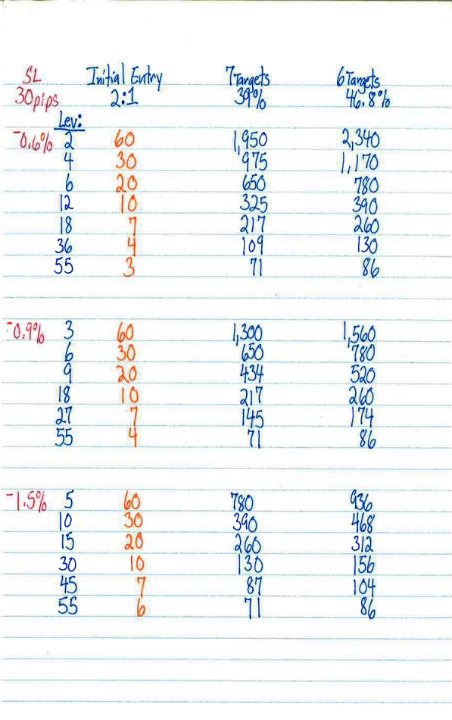 SL Initial Entry 7 Targets 6 Targets
30 pips 2:1 39% 46.8%
Lev:
-0.6% 2 60 1,950 2,340
4 30 975 1,170
6 20 650 780
12 10 325 390
18 7 217 260
36 4 109 130
55 3 71 86
-0.9% 3 60 1,300 1,560
6 30 650 780
9 20 434 520
18 10 217 260
27 7 145 174
55 4 71 86
-1.5% 5 60 780 936
10 30 390 468
15 20 260 312
30 10 130 156
45 7 87 104
55 6 71 86